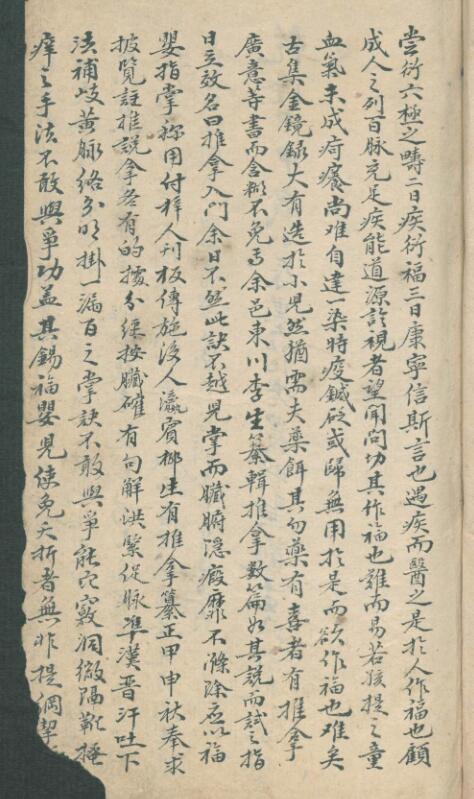 尝衍六極之疇二曰疾衍福三曰康寧信斯言也遇疾而醫之是於人作福也顧
成人之列百脉充足疾能道源診視者望聞問切其作福也雖而易若孩提之童
血氣未成疴癢尚难自達一染時疫鍼砭或歸無用於是而欲作福也难矣
古集金鏡録大有造於小児然猶需夫藥餌其勿藥有喜者有推拿
廣意等書而含糊不免焉余邑東川李生纂輯推拿数篇如其説而試之指
日立效名曰推拿入門余曰不然此訣不越児掌而臟腑隱瘕靡不滌除应以福
嬰指掌称用付梓人刊板傳施後人瀛賓柳生有推拿纂正甲申秋奉求
披覽註推説拿各有的據分経按臟確有句解洪緊促脉準漢晋汗吐下
法補岐黄脉絡分明掛一漏百之掌訣不敢與爭能穴竅洞徹隔靴搔
痒之手法不敢與爭功益其錫福嬰児使免夭折者無非提綱挈